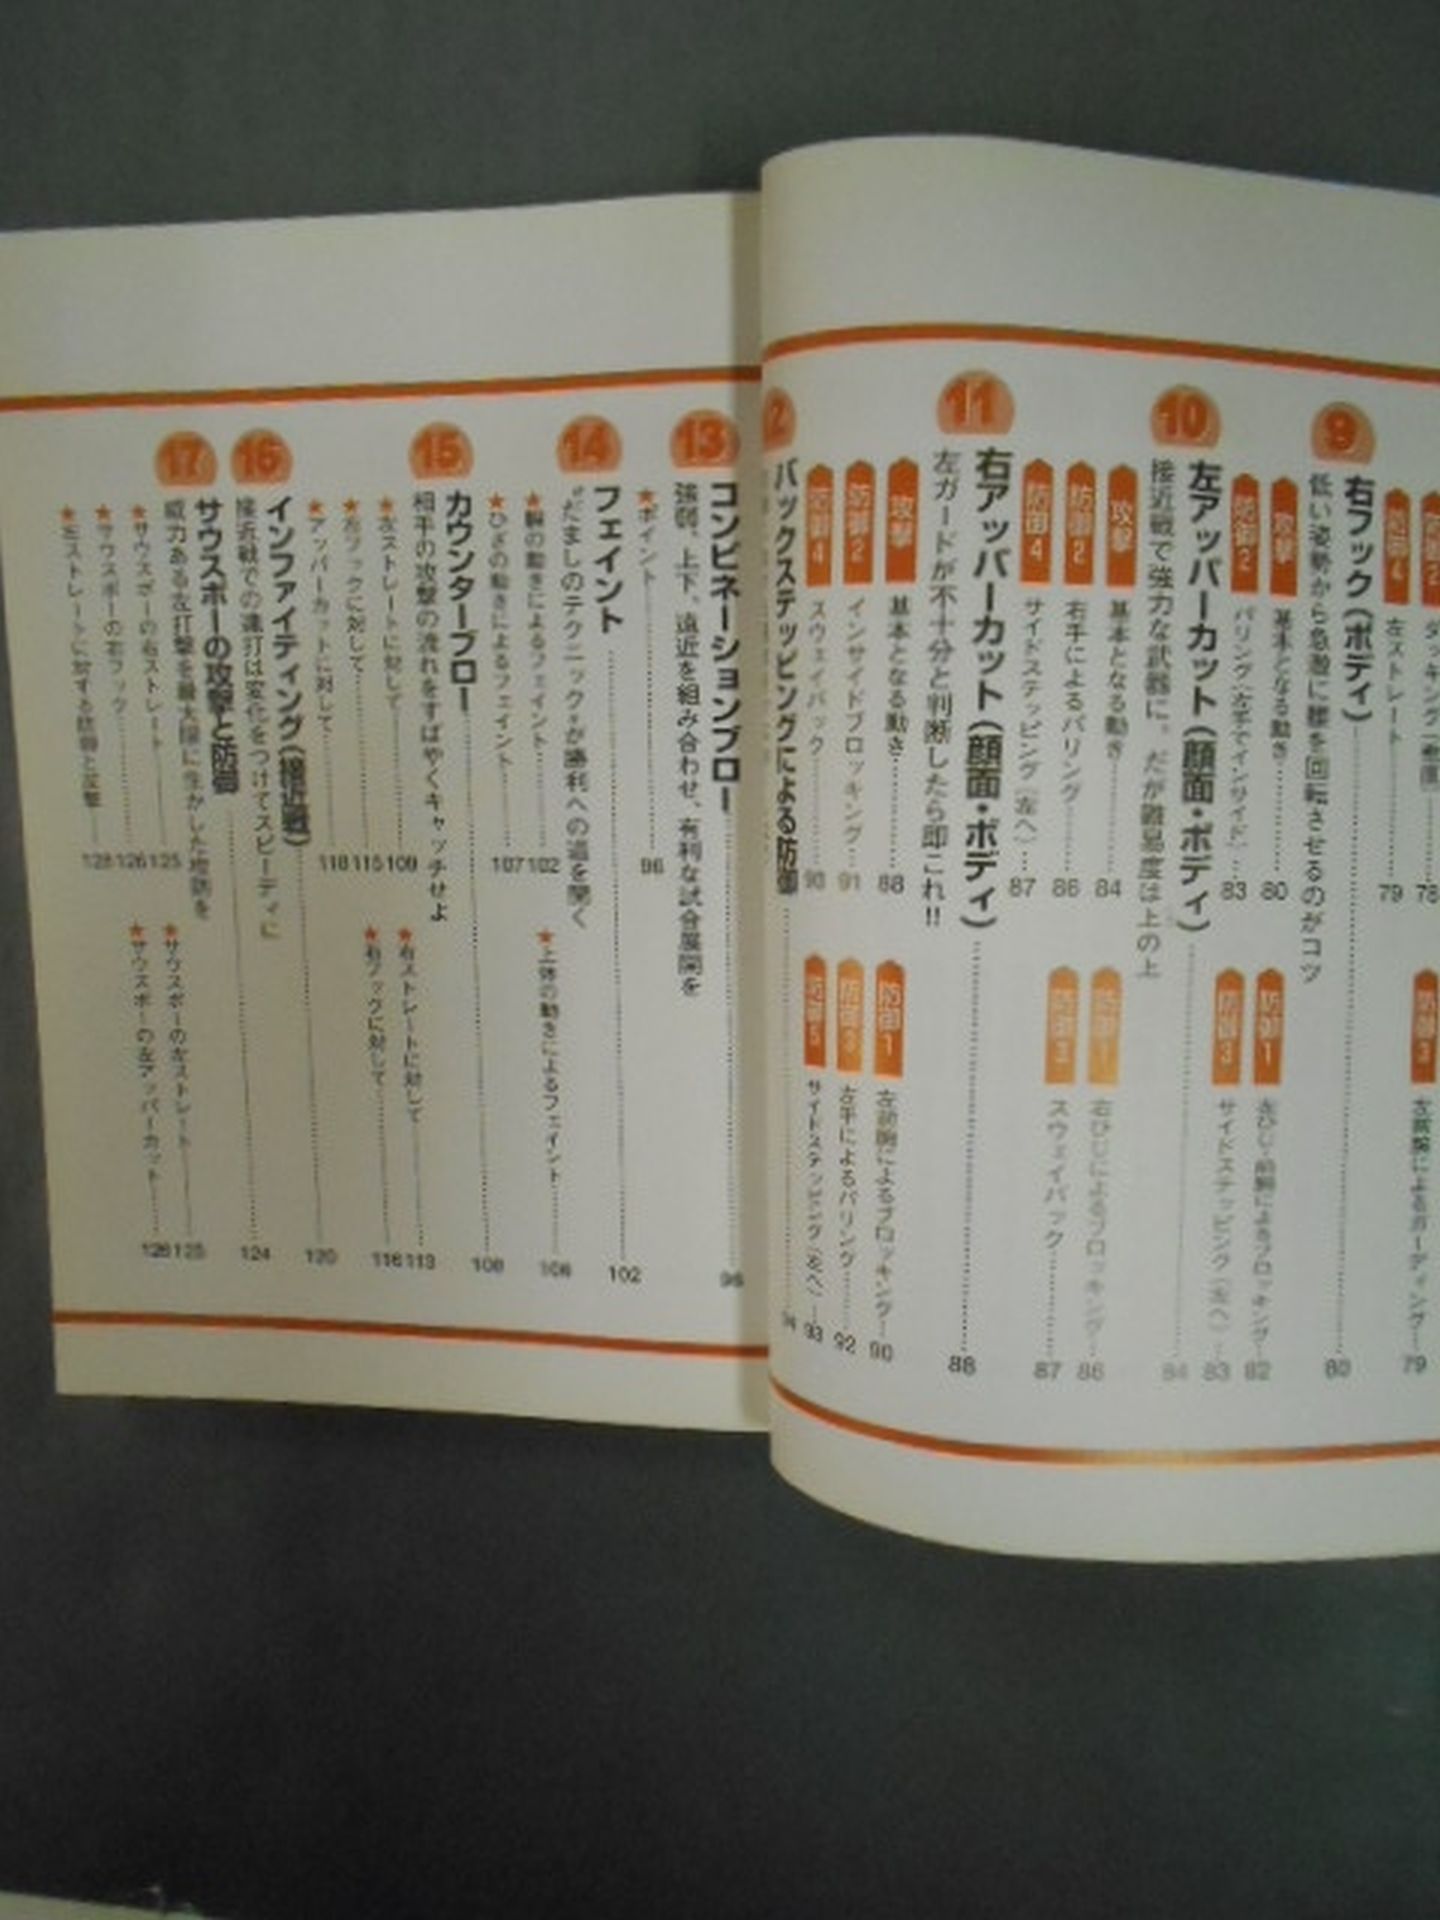 防御3
79
防御2
78
防御4
左ストレート
79
9
右フック(ボディ)
80
低い姿勢から急激に腰を回転させるのがコツ
攻撃
基本となる動き
80
防御1
左ひじ・前腕によるブロッキング
82
防御2
パリング(左手でインサイド)
83
防御3
サイドステッピング(左へ)
83
10
左アッパーカット(顔面・ボディ)
84
接近戦で強力な武器に。だが難易度は上の上
攻撃
基本となる動き
84
防御1
右ひじによるブロッキング
86
防御2
右手によるパリング
86
防御3
スウェイバック
87
防御4
サイドステッピング(左へ)
87
11
右アッパーカット(顔面・ボディ)
88
左ガードが不十分と判断したら即これ!!
攻撃
基本となる動き
88
防御1
左前腕によるブロッキング
90
防御2
インサイドブロッキング
91
防御3
左手によるパリング
92
防御4
スウェイバック
93
防御5
サイドステッピング(左へ)
93
バックステッピングによる防御
94
13
コンビネーションブロー
96
強弱、上下、遠近を組み合わせ、有利な試合展開を
★ポイント
96
14
フェイント
102
“だましのテクニック”が勝利への道を開く
★腕の動きによるフェイント
102
★上体の動きによるフェイント
106
★ひざの動きによるフェイント
107
15
カウンターブロー
108
相手の攻撃の流れをすばやくキャッチせよ
★左ストレートに対して
109
★右ストレートに対して
113
★左フックに対して
115
★右フックに対して
116
★アッパーカットに対して
118
16
インファイティング(接近戦)
120
接近戦での連打は変化をつけてスピーディに
17
サウスポーの攻撃と防御
124
威力ある左打撃を最大限に生かした攻防を
★サウスポーの右ストレート
125
★サウスポーの左ストレート
125
★サウスポーの右フック
126
★サウスポーの左アッパーカット
128
★左ストレートに対する防御と反撃
128